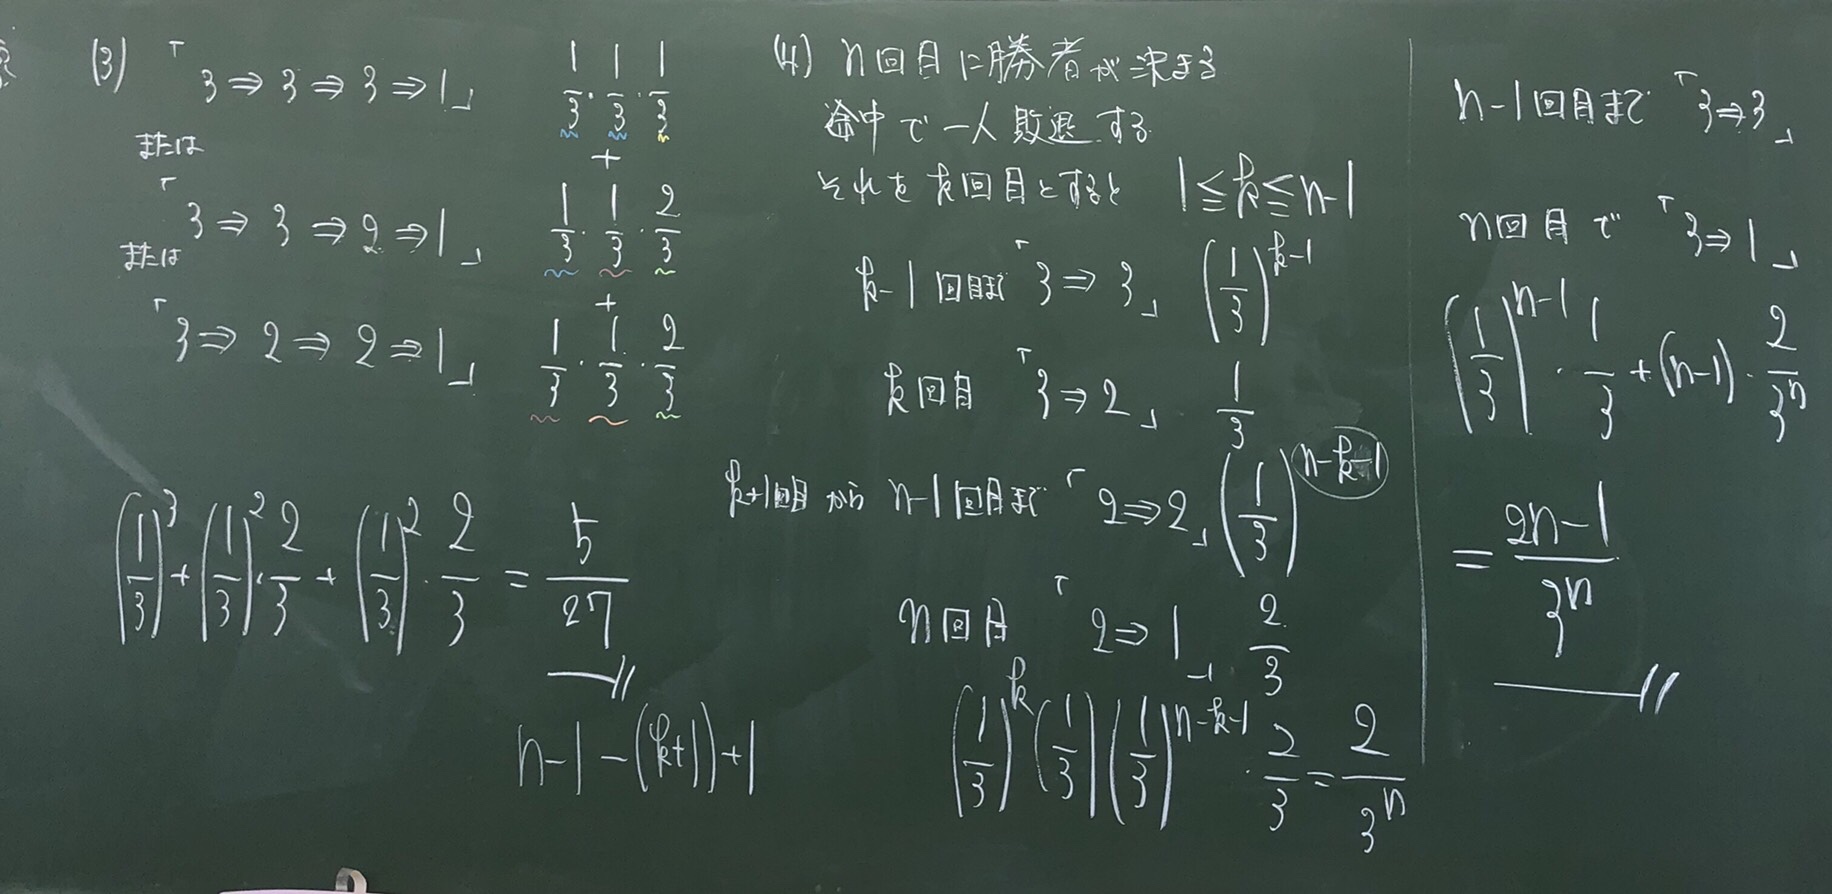 (3) 「3⇒3⇒3⇒1」 1/3・1/3・1/3
または +
「3⇒3⇒2⇒1」 1/3・1/3・2/3
または +
「3⇒2⇒2⇒1」 1/3・1/3・2/3
(1/3)^3+(1/3)^2・2/3+(1/3)^2・2/3=5/27
n-1-(k+1)+1
(4) n回目に勝者が決まる
途中で一人敗退する
それをk回目とすると 1≦k≦n-1
k-1回目まで「3⇒3」 (1/3)^{k-1}
k回目「3⇒2」 1/3
k+1回目からn-1回目まで「2⇒2」 (1/3)^{n-k-1}
n回目「2⇒1」 2/3
(1/3)^k(1/3)(1/3)^{n-k-1}・2/3=2/3^n
n-1回目まで「3⇒3」
n回目で「3⇒1」
(1/3)^{n-1}・1/3+(n-1)・2/3^n
=(2n-1)/3^n